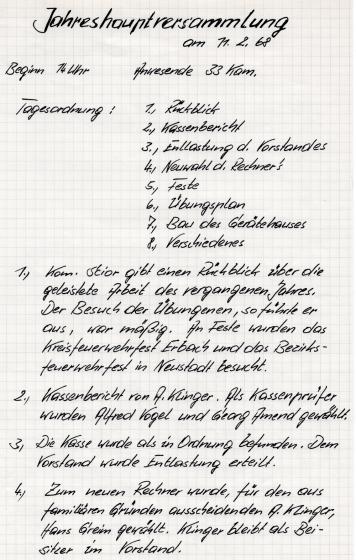 Jahreshauptversammlung
am 11. 2. 68
Beginn 14 Uhr Anwesende 33 Kam.
Tagesordnung : 1., Rückblick
2., Kassenbericht
3., Entlastung d. Vorstandes
4., Neuwahl d. Rechner's
5., Feste
6., Übungsplan
7., Bau des Gerätehauses
8., Verschiedenes
1., Kam. Stior gibt einen Rückblick über die
geleistete Arbeit des vergangenen Jahres.
Der Besuch der Übungenen, so führte er
aus, war mäßig. An Feste wurden das
Kreisfeuerwehrfest Erbach und das Bezirks-
feuerwehrfest in Neustadt besucht.
2., Kassenbericht von A. Klinger. Als Kassenprüfer
wurden Alfred Vogel und Georg Amend gewählt.
3., Die Kasse wurde als in Ordnung befunden. Dem
Vorstand wurde Entlastung erteilt.
4., Zum neuen Rechner wurde, für den aus
familiären Gründen ausscheidenden A. Klinger,
Hans Greim gewählt. Klinger bleibt als Bei-
sitzer im Vorstand.